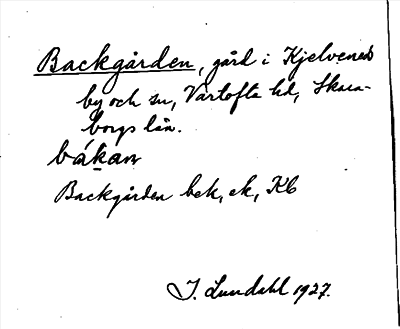 Backgården, gård i Kjelvenes
by och sn, Vartofta hd, Skara-
borgs län.
bákan
Backgården bek, ek, Kb
I. Lundahl 1927.